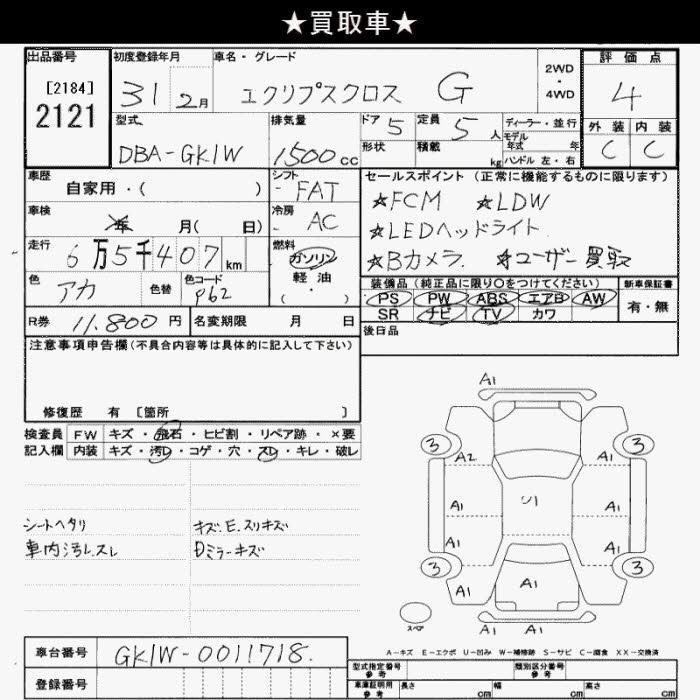 ★買取車★
出品番号 初度登録年月 車名・グレード 評価点
[2184]
2121
31 2月 エクリプスクロス G 2WD・4WD 4
型式 排気量 ドア 定員 ディーラー・並行 外装 内装
DBA-GK1W 1500cc 5 5人 モデル年式 年 C C
形状 積載 kg ハンドル 左・右
車歴 シフト セールスポイント(正常に機能するものに限ります)
自家用・( ) - FAT ☆FCM ☆LDW
車検 冷房
年 月( 日) - AC ☆LEDヘッドライト
走行 燃料
6万5千407km ガソリン ☆Bカメラ ☆ユーザー買取
色 色替 色コード 軽・油
アカ P62 (・)
装備品(純正品に限り○をつけてください) 新車保証書
PS PW ABS エアB AW 有・無
SR ナビ TV カワ
R券 11.800円 名変期限 月 日 後日品
注意事項申告欄(不具合内容等は具体的に記入して下さい)
修復歴 有 〔箇所 〕
検査員 FW キズ・飛石・ヒビ割・リペア跡・×要
記入欄 内装 キズ・汚レ・コゲ・穴・スレ・キレ・破レ
シートヘタリ キズ、E、スリキズ
車内汚レスレ Dミラーキズ
A1
3 3
A2 A1
A1 U1 A1
A1 A1
3 3
A1 A1 A1
スペア A1 A1
A-キズ E-エクボ U-凹み W-補修跡 S-サビ C-腐食 XX-交換済
車台番号 GK1W-0011718.
登録番号
型式指定番号 参考 類別区分番号 参考
車庫証明用 参考 長さ cm 幅 cm 高さ cm